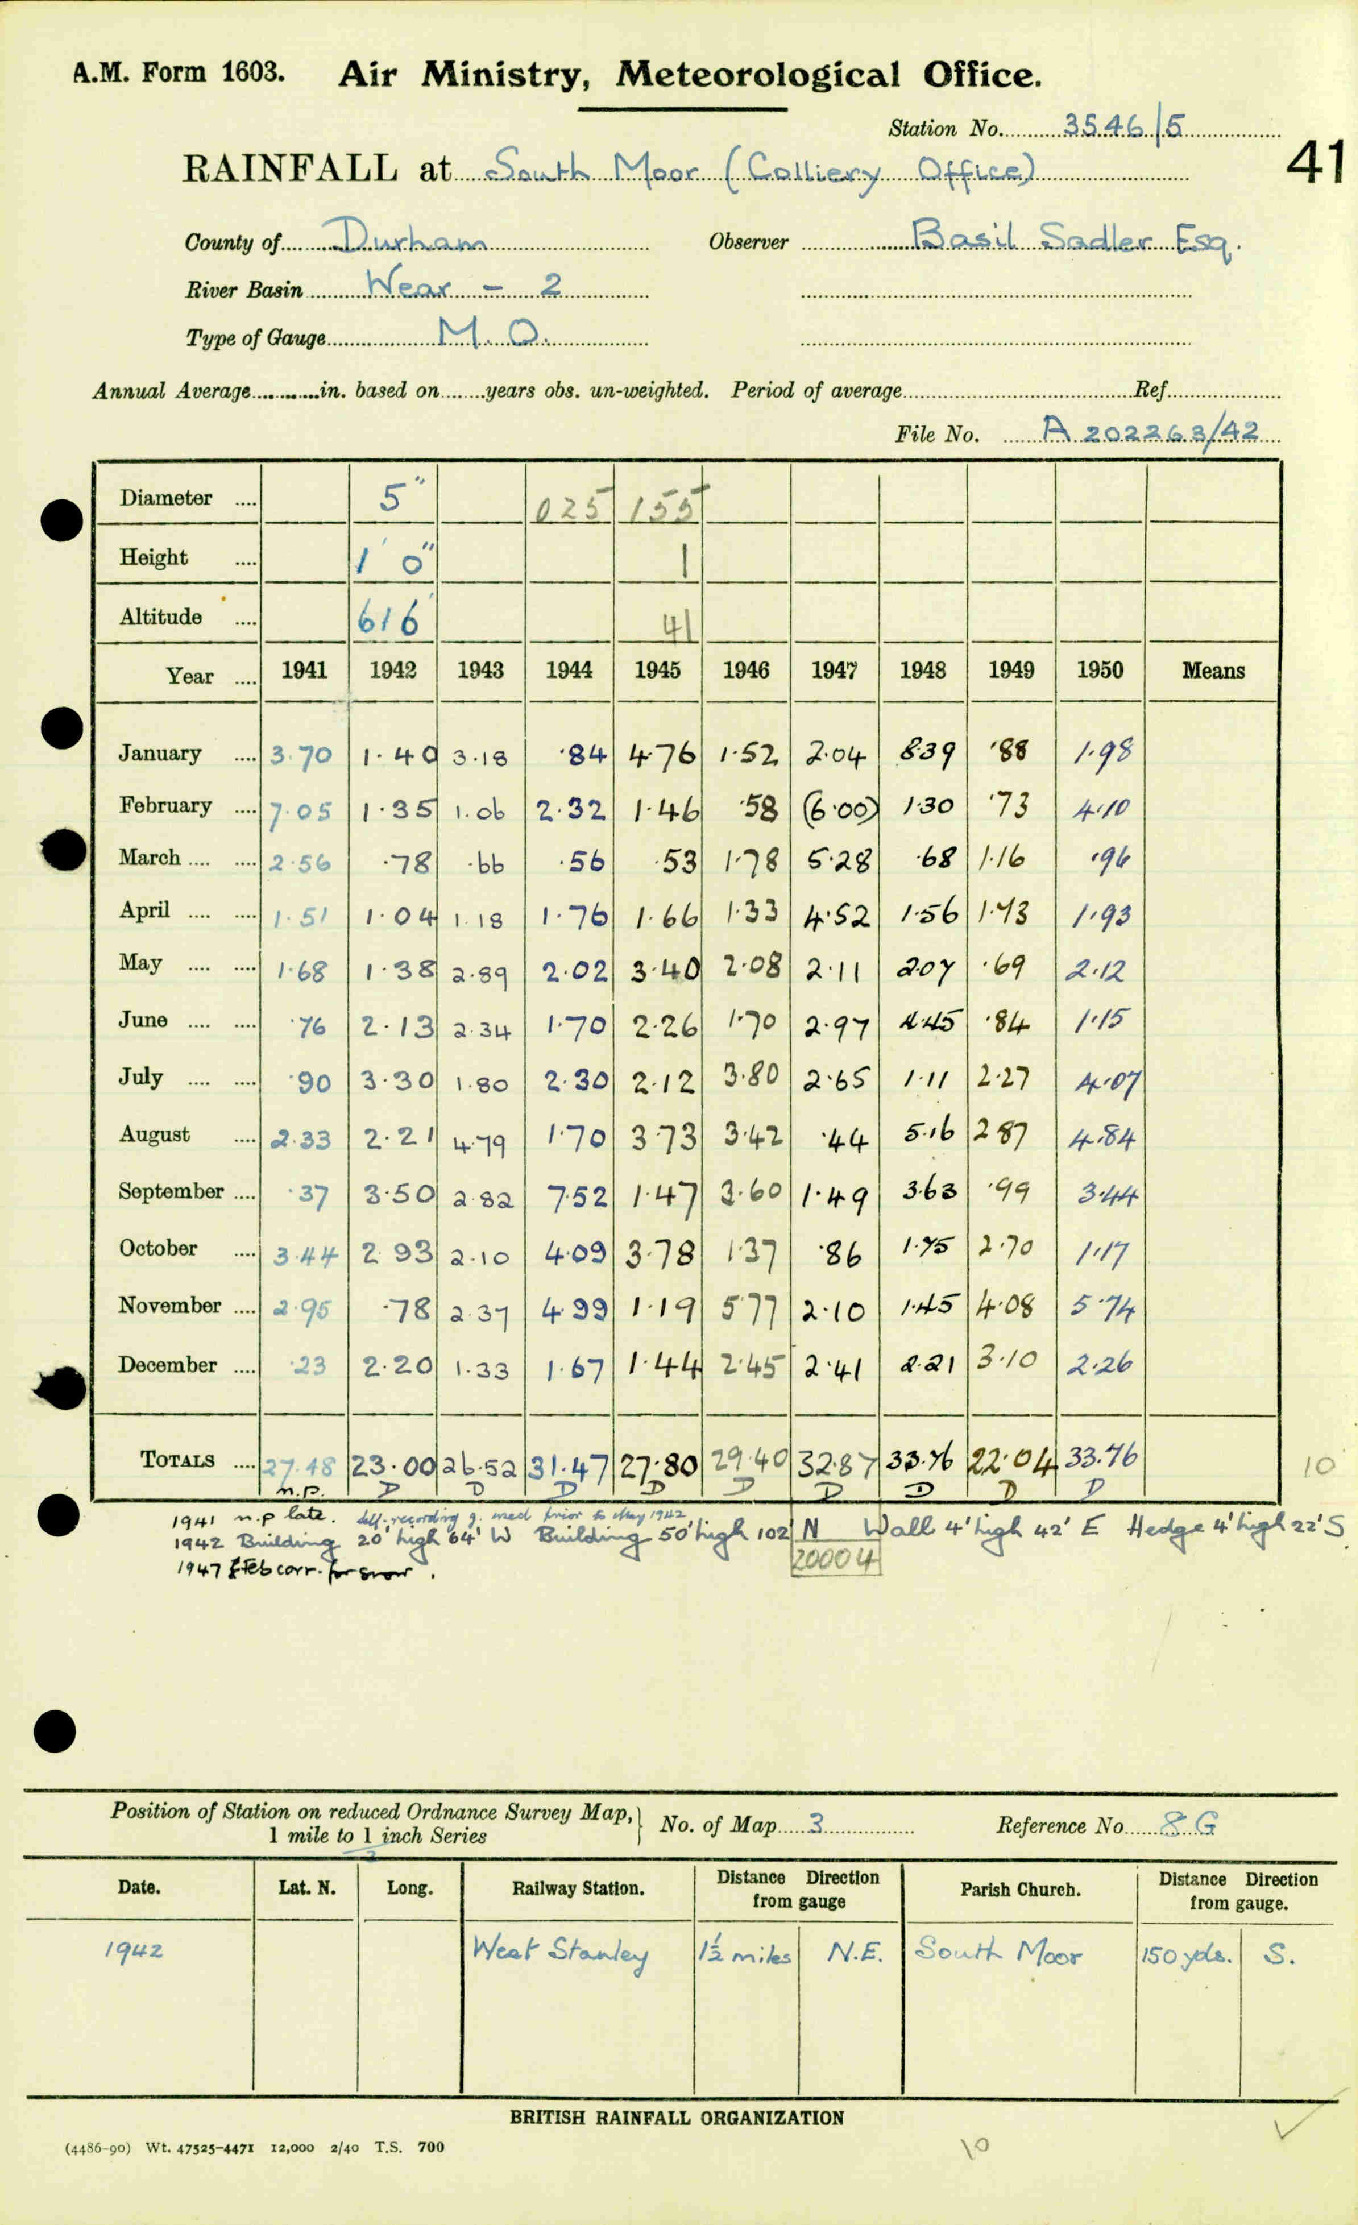 A.M. Form 1603. Air Ministry, Meteorological Office.
Station No. 3546/5
41
RAINFALL at South Moor (Colliery Office)
County of Durham Observer Basil Sadler Esq.
River Basin Wear - 2
Type of Gauge M.O.
Annual Average in. based on years obs. un-weighted. Period of average Ref.
File No. A 202263/42
Diameter 5" 025 155
Height 1' 0" 1
Altitude 616' 41
Year 1941 1942 1943 1944 1945 1946 1947 1948 1949 1950 Means
January 3.70 1.40 3.18 .84 4.76 1.52 2.04 8.39 .88 1.98
February 7.05 1.35 1.06 2.32 1.46 .58 (6.00) 1.30 .73 4.10
March 2.56 .78 .66 .56 .53 1.78 5.28 .68 1.16 .96
April 1.51 1.04 1.18 1.76 1.66 1.33 4.52 1.56 1.73 1.93
May 1.68 1.38 2.89 2.02 3.40 2.08 2.11 2.07 .69 2.12
June .76 2.13 2.34 1.70 2.26 1.70 2.97 4.45 .84 1.15
July .90 3.30 1.80 2.30 2.12 3.80 2.65 1.11 2.27 4.07
August 2.33 2.21 4.79 1.70 3.73 3.42 .44 5.16 2.87 4.84
September .37 3.50 2.82 7.52 1.47 3.60 1.49 3.63 .99 3.44
October 3.44 2.93 2.10 4.09 3.78 1.37 .86 1.75 2.70 1.17
November 2.95 .78 2.37 4.99 1.19 5.77 2.10 1.45 4.08 5.74
December .23 2.20 1.33 1.67 1.44 2.45 2.41 2.21 3.10 2.26
TOTALS 27.48 23.00 26.52 31.47 27.80 29.40 32.87 33.76 22.04 33.76 10
n.p. D D D D D D D D D
1941 n.p late. Self-recording g. used prior to May 1942
1942 Building 20' high 64' W Building 50' high 102' N Wall 4' high 42' E Hedge 4' high 22' S
20004
1947 Feb corr. for snow.
Position of Station on reduced Ordnance Survey Map, No. of Map 3 Reference No 8 G
1 mile to 1 inch Series
2
Date. Lat. N. Long. Railway Station. Distance Direction from gauge Parish Church. Distance Direction from gauge.
1942 West Stanley 1½ miles N.E. South Moor 150 yds. S.
BRITISH RAINFALL ORGANIZATION
(4486-90) Wt. 47525-4471 12,000 2/40 T.S. 700
10